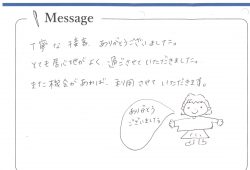 Message
丁寧な接客、ありがとうございました。
とても居心地がよく過ごさせていただきました。
また機会があれば、利用させていただきます。
ありがとう
ございました